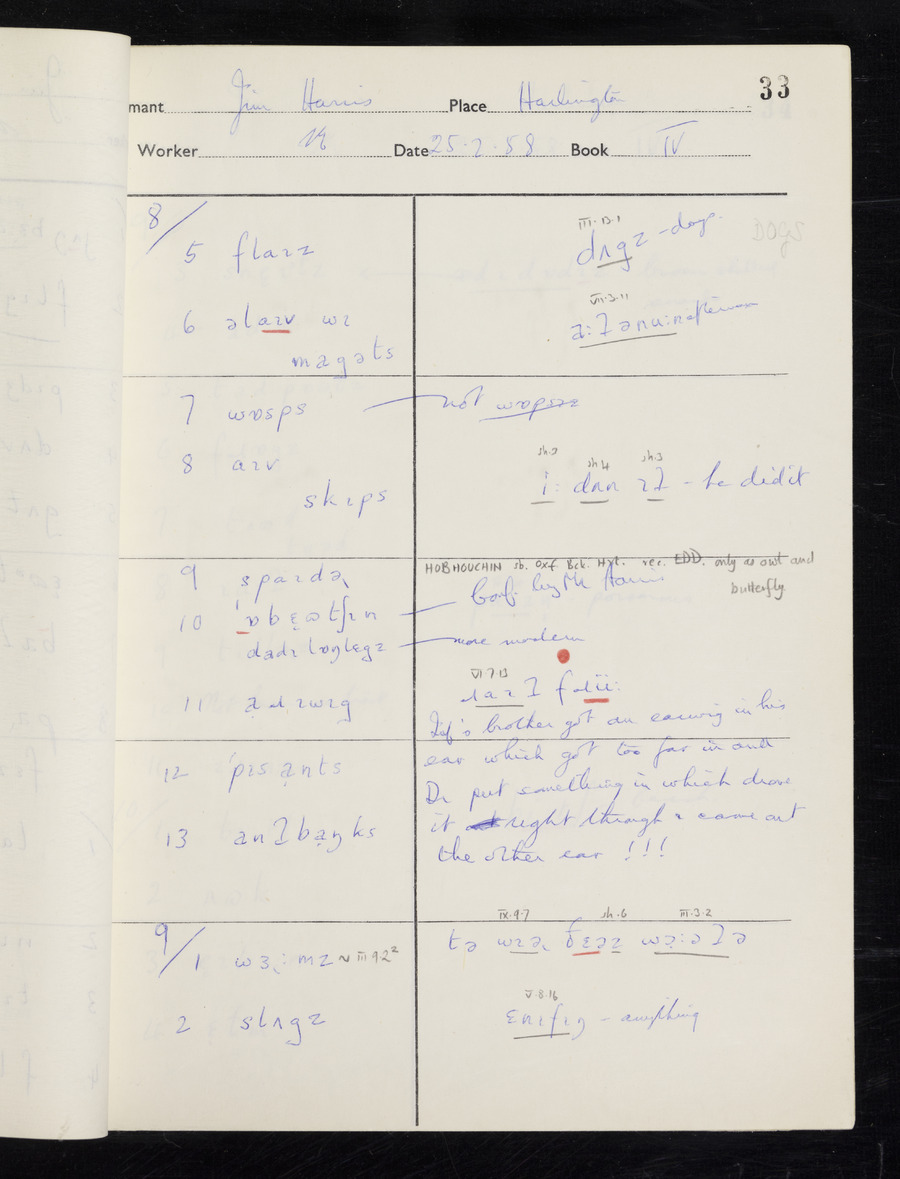 33
mant Jim Harris Place Harlington
Worker Date 25.2.58 Book IV
8/
5 flaɪz
III.13.1
dʌgz - dogs
6 əlaɪv wɪ
magəts
VII.3.11
a:ʔənu:n afternoon
7 wɒsps not wɒpsɪz
8 aɪv
skɪps
sh.9 sh.4 sh.3
i: dʌn ɪʔ - he did it
HOBHOUCHIN sb. Oxf. Bck. Hrt. rec. EDD. only as owl and
butterfly
9 spaɪdə
10 ˈɒbɛʊtʃɪn Conf. by Mr Harris
dadɪ lɒŋlegz more modern
11 aɪɹɪwɪg
VI.7.13
ɹaɪʔ fɹɪi:
Inf's brother got an earwig in his
ear which got too far in and
Dr put something in which drove
it right through & came out
the other ear !!!
12 ˈpɪsants
13 anʔbaŋks
9/
IX.9.7 sh.6 III.3.2
tə wɪə ðɛəz wə:əʔə
1 wɜ:mz ~ III 9.2²
2 slʌgz
V.8.16
ɛnɪfɪŋ - anything